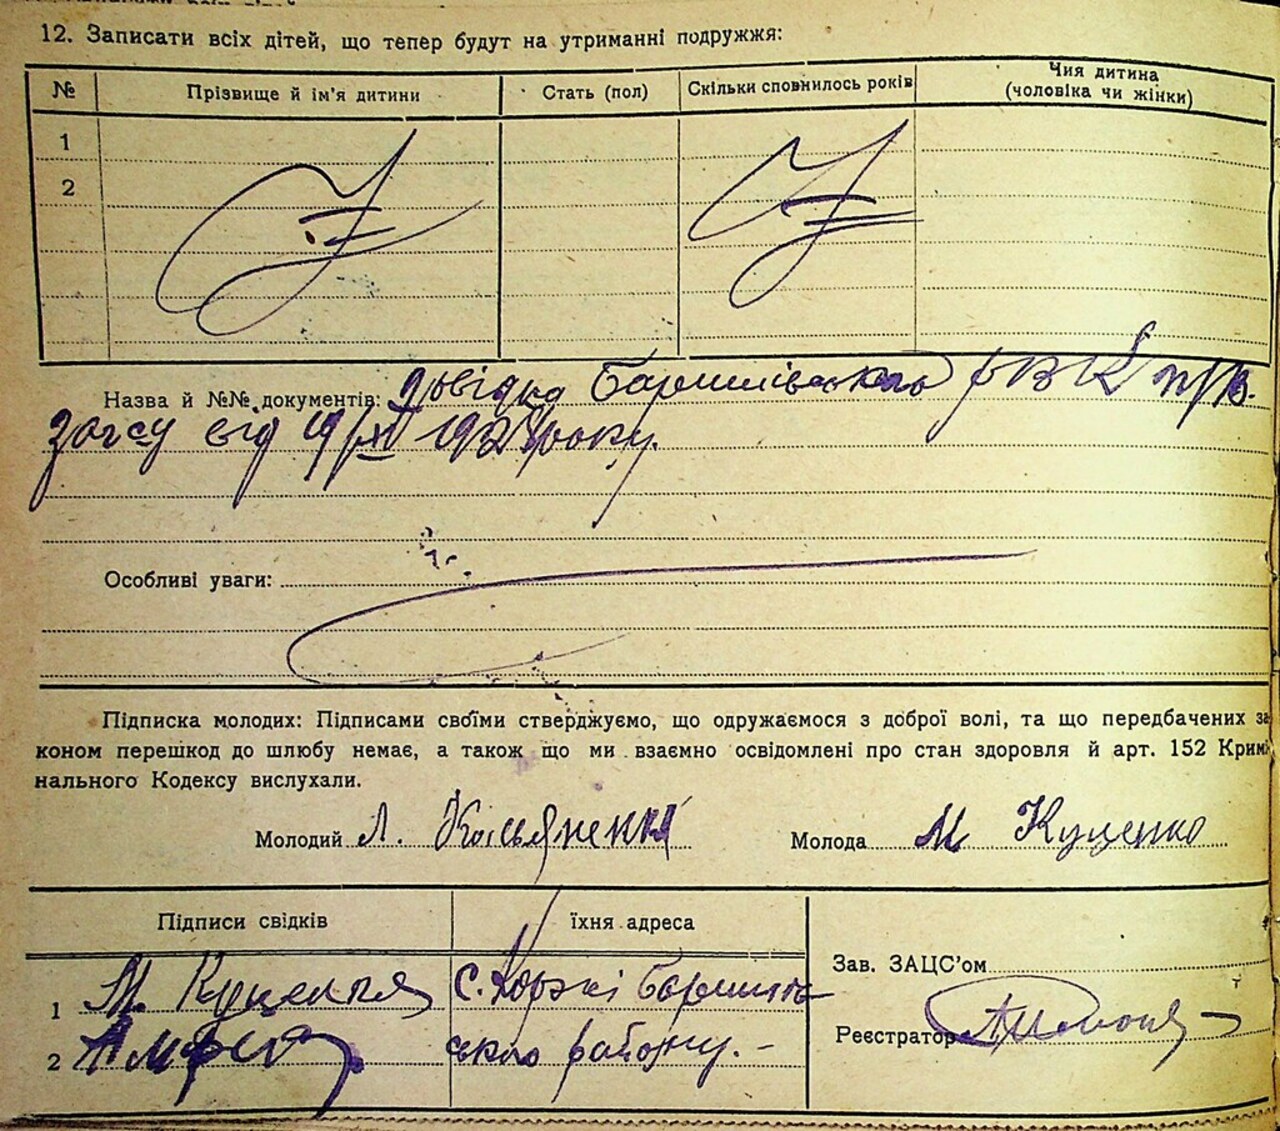 12. Записати всіх дітей, що тепер будут на утриманні подружжя:
№ Прізвище й ім'я дитини Стать (пол) Скільки сповнилось років Чия дитина (чоловіка чи жінки)
1
2
Назва й №№ документів: довідка Баришівського РВК п/в.
загсу від 19/XII 192 року.
Особливі уваги:
Підписка молодих: Підписами своїми стверджуємо, що одружаємося з доброї волі, та що передбачених за
коном перешкод до шлюбу немає, а також що ми взаємно освідомлені про стан здоровля й арт. 152 Кримі
нального Кодексу вислухали.
Молодий Л. Молода М Куценко
Підписи свідків їхня адреса
1 М. с. Коржі Баришів
2 ського району. –
Зав. ЗАЦС'ом
Реєстратор